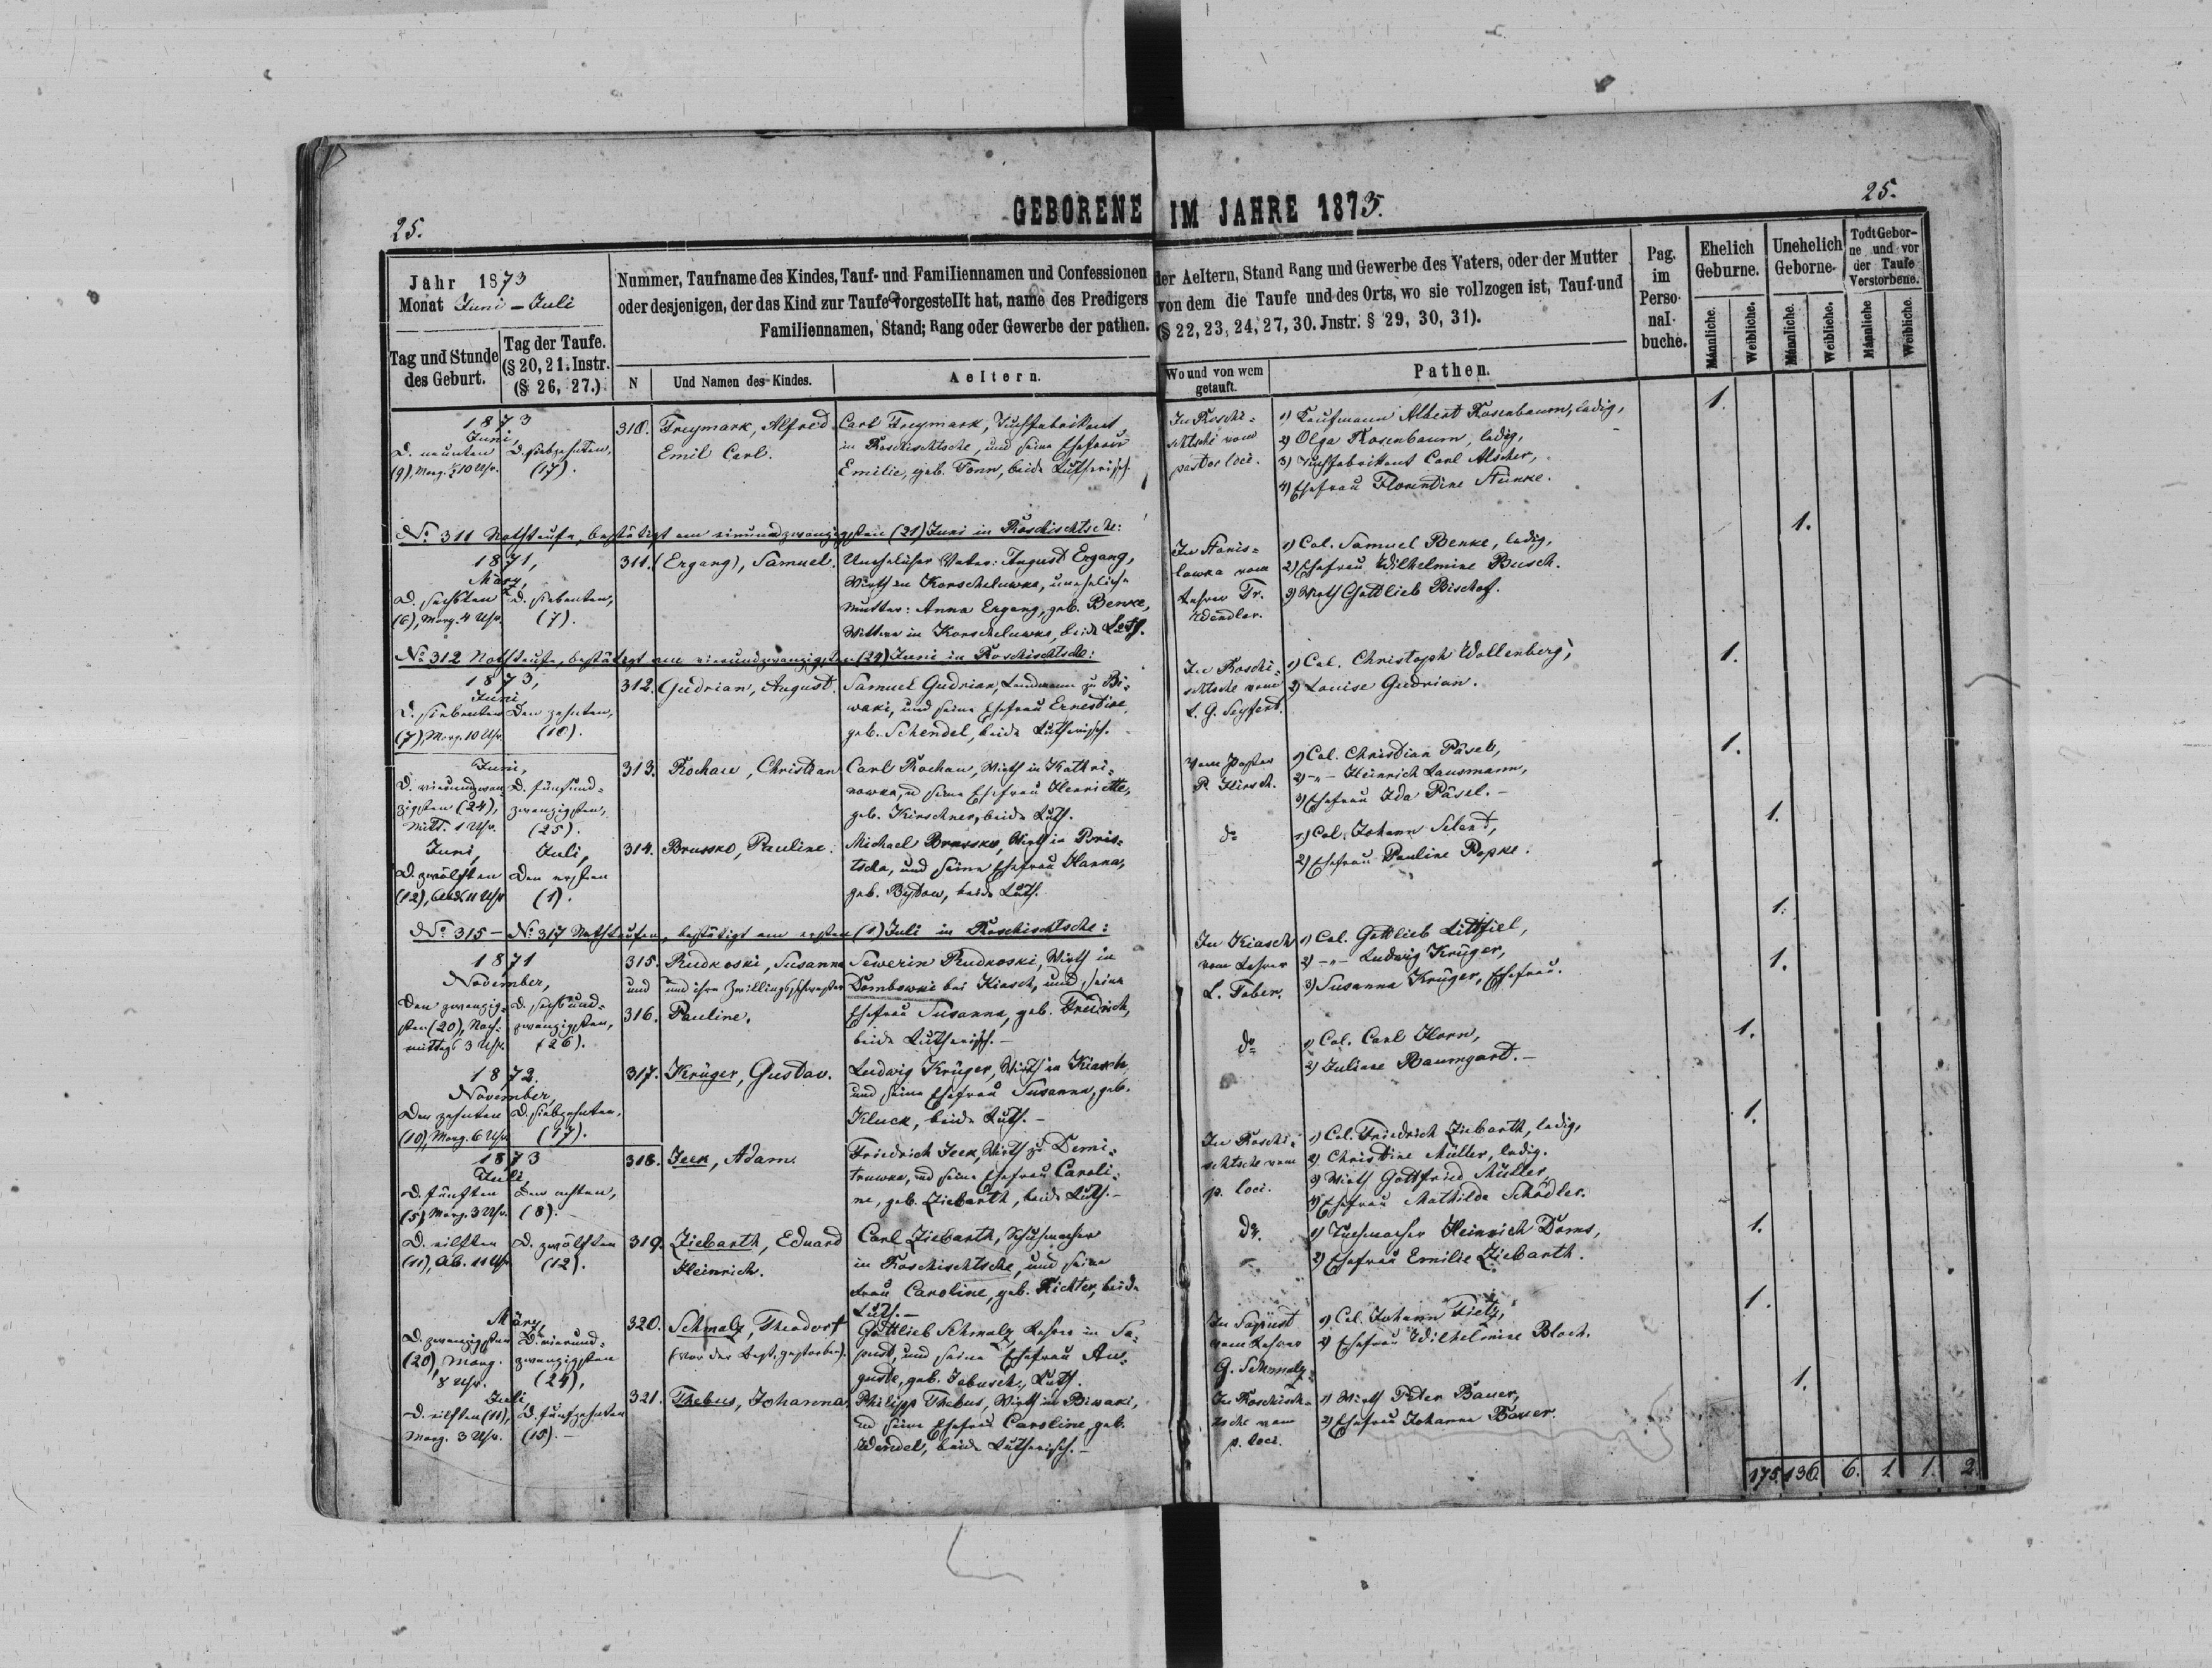 25.
GEBORENE IM JAHRE 1873.
25.
Jahr 1873
Monat Juni - Juli
Tag und Stunde
des Geburt.
Tag der Taufe.
(§ 20, 21. Instr.
(§ 26, 27.)
Nummer, Taufname des Kindes, Tauf- und Familiennamen und Confessionen der Aeltern, Stand Rang und Gewerbe des Vaters, oder der Mutter
oder desjenigen, der das Kind zur Taufe vorgestellt hat, name des Predigers von dem die Taufe und des Orts, wo sie vollzogen ist, Tauf- und
Familiennamen, Stand; Rang oder Gewerbe der pathen. (§ 22, 23, 24, 27, 30. Jnstr. § 29, 30, 31).
N
Und Namen des Kindes.
Aeltern.
Wo und von wem
getauft.
Pathen.
Pag.
im
Perso-
nal-
buche.
Ehelich
Geburne.
Unehelich
Geborne.
Todt Gebor-
ne und vor
der Taufe
Verstorbene.
Männliche.
Weibliche.
Männliche.
Weibliche.
Männliche
Weibliche.
1873
Juni,
D. neunten
(9), Morg. ½10 Uhr.
D. siebzehnten,
(17).
310.
Freymark, Alfred
Emil Carl.
Carl Freymark, Tuchfabrikant
in Roschischtsche, und seine Ehefrau
Emilie, geb. Tonn, beide Lutherisch.
In Roschi-
schtsche vom
pastor loci.
1) Kaufmann Albert Rosenbaum, ledig,
2) Olga Rosenbaum, ledig,
3) Tuchfabrikant Carl Alscher,
4) Ehefrau Florentine Stünke.
1.
No. 311 Nothtaufe, bestätigt am einundzwanzigsten (21) Juni in Roschischtsche:
1871,
März,
D. sechsten
(6), Morg. 4 Uhr.
D. siebenten,
(7).
311.
(Ergang), Samuel.
Unehelicher Vater: August Ergang,
Wirth in Korscheluwka, uneheliche
Mutter: Anna Ergang, geb. Benke,
Wittwe in Korscheluwka, beide Luth.
In Stanis-
lawka vom
Lehrer Fr.
Wendler.
1) Col. Samuel Benke, ledig,
2) Ehefrau Wilhelmine Busch.
3) Wirth Gottlieb Bischof.
1.
No. 312 Nothtaufe, bestätigt am vierundzwanzigsten (24) Juni in Roschischtsche:
1873,
Juni
D. siebenten
(7), Morg. 10 Uhr.
Den zehnten,
(10).
312.
Gudrian, August.
Samuel Gudrian, Landmann zu Bi-
waki, und seine Ehefrau Ernestine,
geb. Schendel, beide Lutherisch.
In Roschi-
schtsche vom
L. G. Seyfert.
1) Col. Christoph Wollenberg,
2) Louise Gudrian.
1.
Juni,
D. vierundzwan-
zigsten (24),
Mitt. 1 Uhr.
D. fünfund-
zwanzigsten,
(25).
313.
Rochau, Christian
Carl Rochau, Wirth in Kathri-
nowka, u seine Ehefrau Henriette,
geb. Kirschner, beide Luth.
vom Pastor
P. Hirsch.
1) Col. Christian Päsel,
2) -"- Heinrich Lausmann,
3) Ehefrau Ida Päsel.-
1.
Juni,
D. zwölften
(12), Abds 11 Uhr
Juli,
den ersten
(1).
314.
Brussko, Pauline.
Michael Brussko, Wirth in Pris-
tscha, und seine Ehefrau Hanna,
geb. Bystow, beide Luth.
do
1) Col. Johann Selent,
2) Ehefrau Pauline Popke.
1.
No. 315 - No. 317 Nothtaufen, bestätigt am ersten (1) Juli in Roschischtsche:
1871
November,
Den zwanzig-
sten (20), Nach-
mittags 3 Uhr.
D. sechsund-
zwanzigsten,
(26).
315.
und
316.
Rudkoski, Susanna
und ihre Zwillingsschwester
Pauline.
Sewerin Rudkoski, Wirth in
Dombowki bei Kiasch, und seine
Ehefrau Susanna, geb. Friedrich,
beide Lutherisch.-
In Kiasch
vom Lehrer
L. Faber.
1) Col. Gottlieb Littfiel,
2) -"- Ludwig Krüger,
3) Susanna Krüger, Ehefrau.
1.
1.
1872.
November,
Den zehnten
(10), Morg. 6 Uhr
D. siebzehnten,
(17).
317.
Krüger, Gustav.
Ludwig Krüger, Wirth in Kiasch,
und seine Ehefrau Susanna, geb.
Kluck, beide Luth.-
do
1) Col. Carl Horn,
2) Juliane Baumgart.-
1.
1873
Juli,
D. fünften
(5) Morg. 3 Uhr.
Den achten,
(8).
318.
Jeck, Adam.
Friedrich Jeck, Wirth zu Demi-
truwka, und seine Ehefrau Caroli-
ne, geb. Ziebarth, beide Luth.-
In Roschi-
schtsche vom
p. loci.
1) Col. Friedrich Ziebarth, ledig,
2) Christine Müller, ledig.
3) Wirth Gottfried Müller,
4) Ehefrau Mathilde Schädler.
1.
D. eilften
(11), Ab. 11 Uhr
D. zwölften
(12).
319.
Ziebarth, Eduard
Heinrich.
Carl Ziebarth, Schuhmacher
in Roschischtsche, und seine
Frau Caroline, geb. Richter, beide
Luth.-
do.
1) Tuchmacher Heinrich Doms,
2) Ehefrau Emilie Ziebarth.
1.
März,
D. zwanzigsten
(20), Morg.
8 Uhr.
D. vierund-
zwanzigsten
(24),
320.
Schmalz, Theodor †
(vor der Best. gestorben).
Gottlieb Schmalz, Lehrer in Sa-
pust, und seine Ehefrau Au-
guste, geb. Jabusch, Luth.
In Sapust
vom Lehrer
G. Schmalz.
1) Col. Johann Fietz,
2) Ehefrau Wilhelmine Bloch.
1.
Juli,
D. eilften (11),
Morg. 3 Uhr.
D. fünfzehnten
(15).-
321.
Thebus, Johanna.
Philipp Thebus, Wirth in Biwaki,
und seine Ehefrau Caroline, geb.
Wendel, beide Lutherisch.-
In Roschisch-
tsche vom
p. loci.
1) Wirth Peter Bauer,
2) Ehefrau Johanna Bauer.
1.
175. 136. 6. 1. 1. 2.